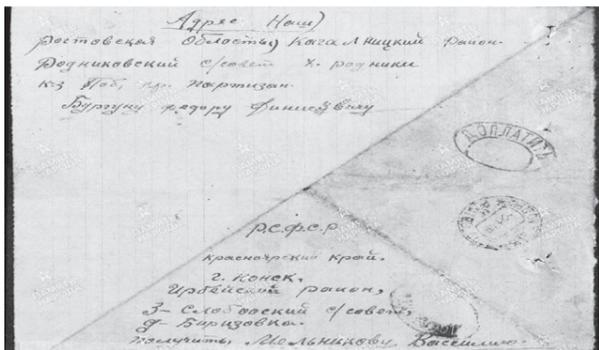 Адрес Наш)
Ростовская Область) Кагальницкий Район.
Родниковский с/совет х. родники
к-з Поб, кр. Партизан.
Бургуну федору
ДОПЛАТИТЬ
Р.С.Ф.С.Р
красноярский край.
г. Конск,
Ирбейский район,
3- Слободский с/совет,
д- Боризовка.
получить Мельникову Вассилию.